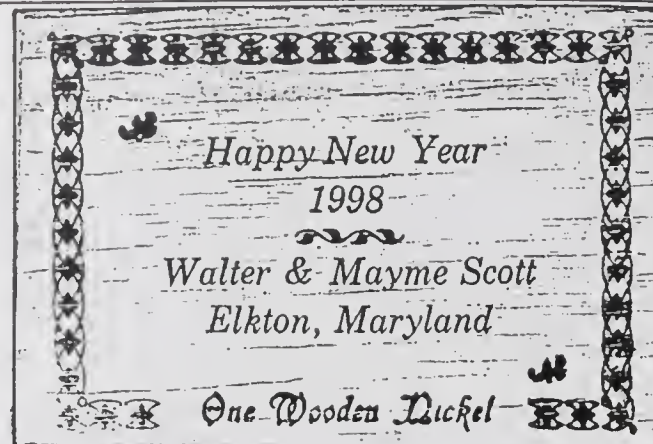 Happy New Year
1998
Walter & Mayme Scott
Elkton, Maryland
One Wooden Nickel